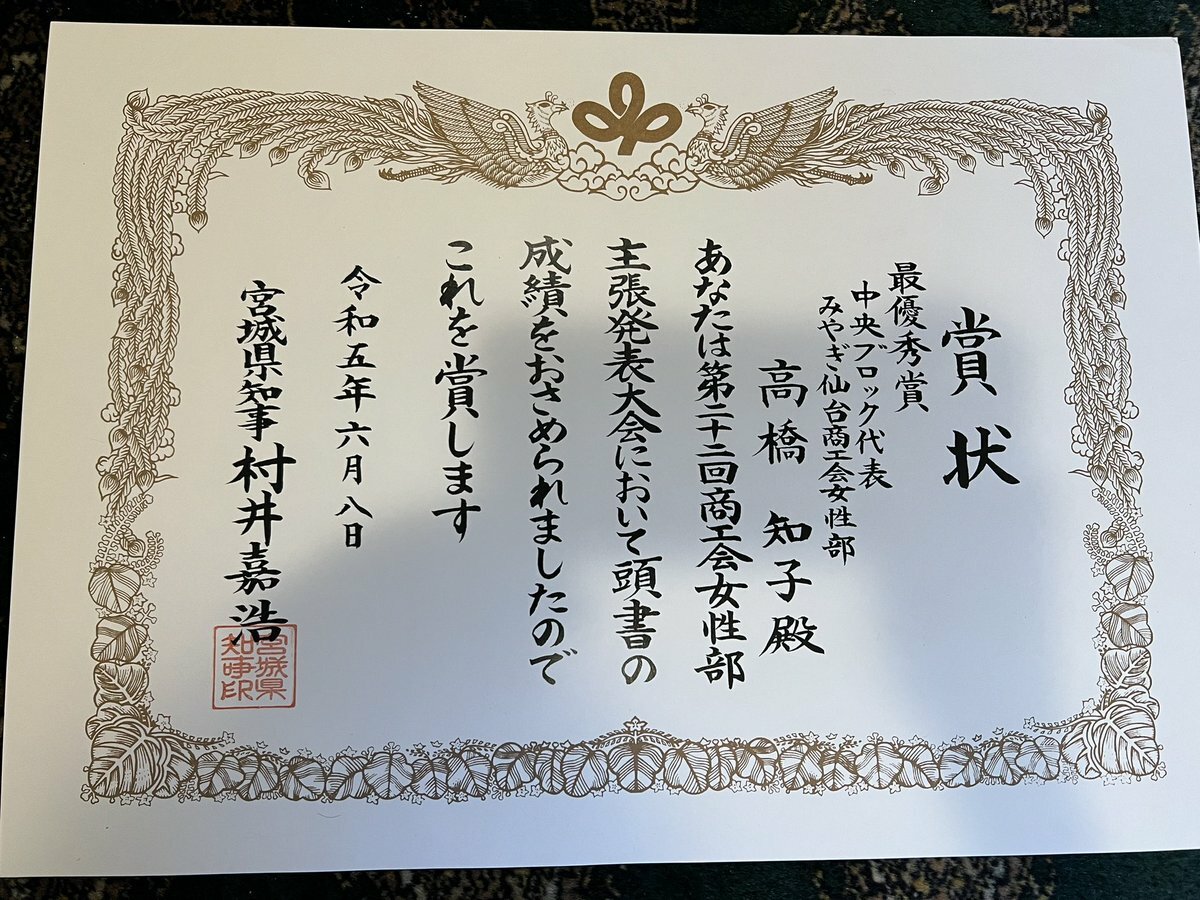 賞状
最優秀賞
中央ブロック代表
みやぎ仙台商工会女性部
高橋 知子殿
あなたは第二十二回商工会女性部
主張発表大会において頭書の
成績をおさめられましたので
これを賞します
令和五年六月八日
宮城県知事 村井嘉浩
宮城県
知事印